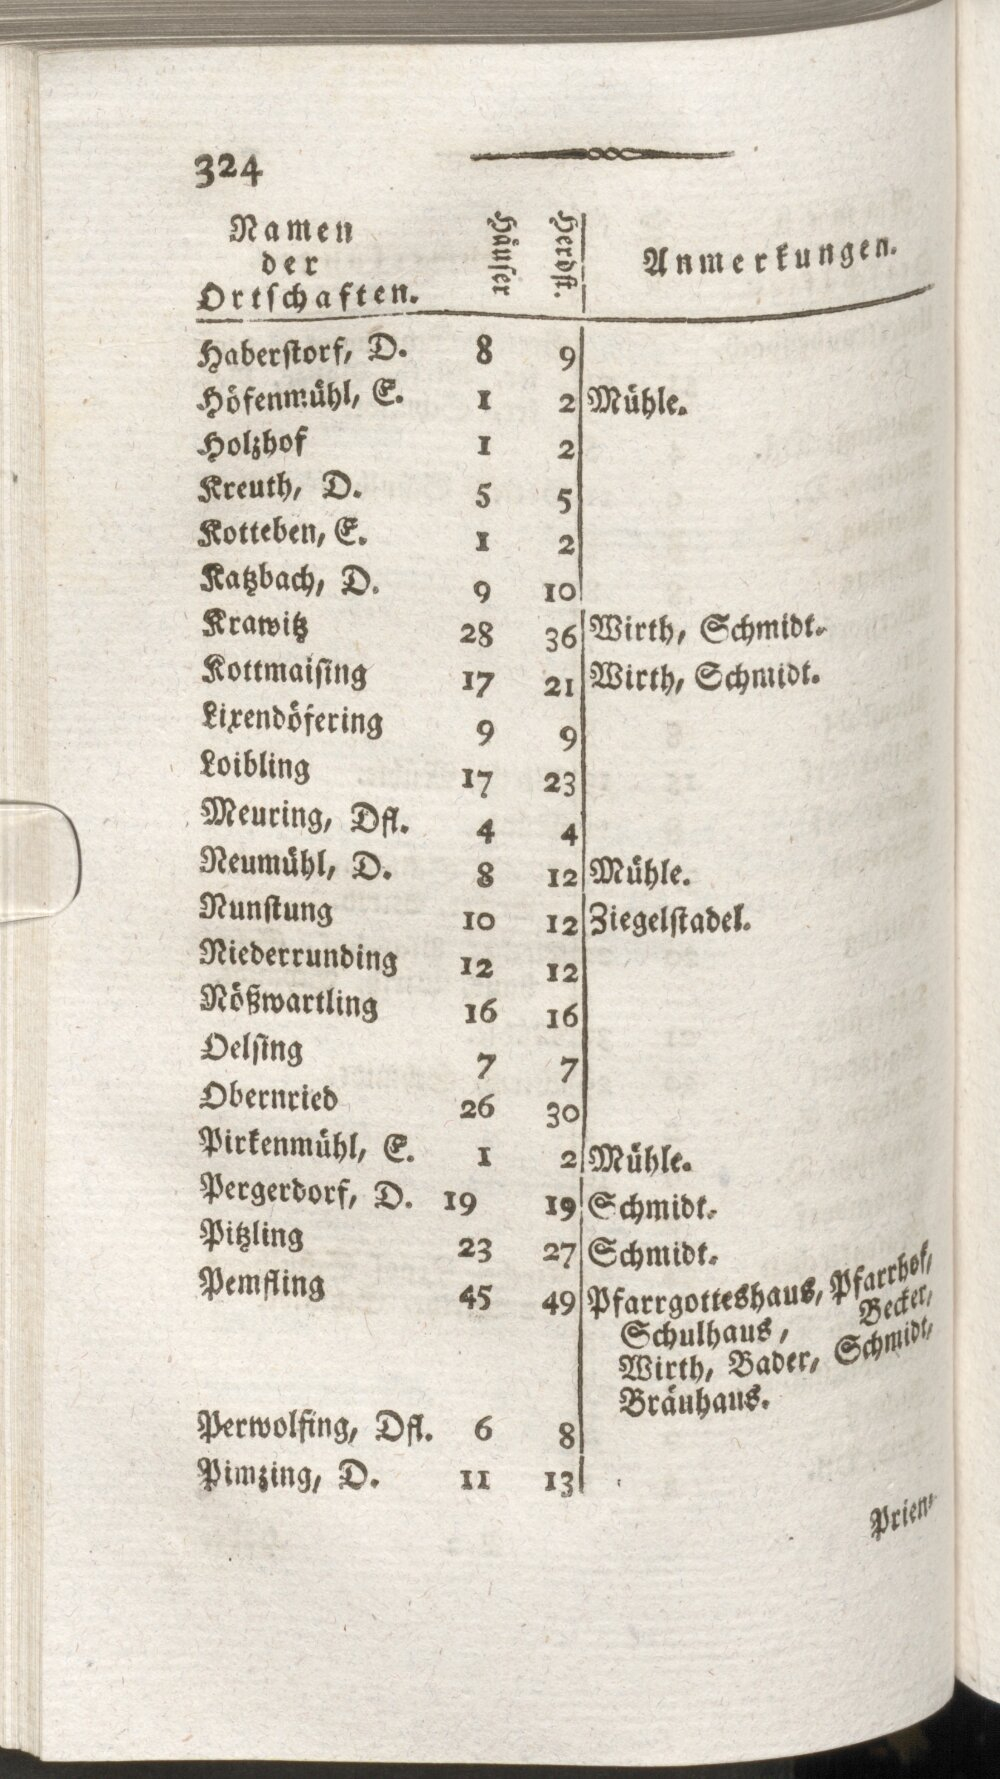 324
Namen
der
Ortschaften.
Häuser
Herdst.
Anmerkungen.
Haberstorf, D. 8 9
Höfenmühl, E. 1 2 Mühle.
Holzhof 1 2
Kreuth, D. 5 5
Kotteben, E. 1 2
Katzbach, D. 9 10
Krawitz 28 36 Wirth, Schmidt.
Kottmaising 17 21 Wirth, Schmidt.
Lixendöfering 9 9
Loibling 17 23
Meuring, Dfl. 4 4
Neumühl, D. 8 12 Mühle.
Nunstung 10 12 Ziegelstadel.
Niederrunding 12 12
Nößwartling 16 16
Oelsing 7 7
Obernried 26 30
Pirkenmühl, E. 1 2 Mühle.
Pergerdorf, D. 19 19 Schmidt.
Pitzling 23 27 Schmidt.
Pemfling 45 49 Pfarrgotteshaus, Pfarrhof,
Schulhaus, Becker,
Wirth, Bader, Schmidt,
Bräuhaus.
Perwolfing, Dfl. 6 8
Pimzing, D. 11 13
Prien-